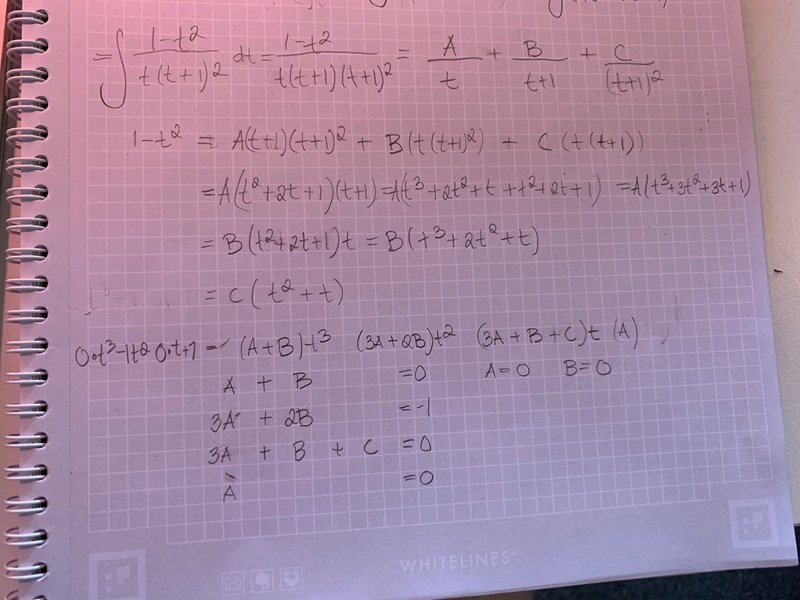 = ∫ 1-t² / t(t+1)² dt = 1-t² / t(t+1)(t+1)² = A / t + B / t+1 + C / (t+1)²
1-t² = A(t+1)(t+1)² + B(t(t+1)²) + C(t(t+1))
= A(t²+2t+1)(t+1) = A(t³+2t²+t+t²+2t+1) = A(t³+3t²+3t+1)
= B(t²+2t+1)t = B(t³+2t²+t)
= C(t²+t)
0·t³-1t² 0·t+1 = (A+B)t³ (3A+2B)t² (3A+B+C)t (A)
A + B = 0 A=0 B=0
3A + 2B = -1
3A + B + C = 0
A = 0
WHITELINES®